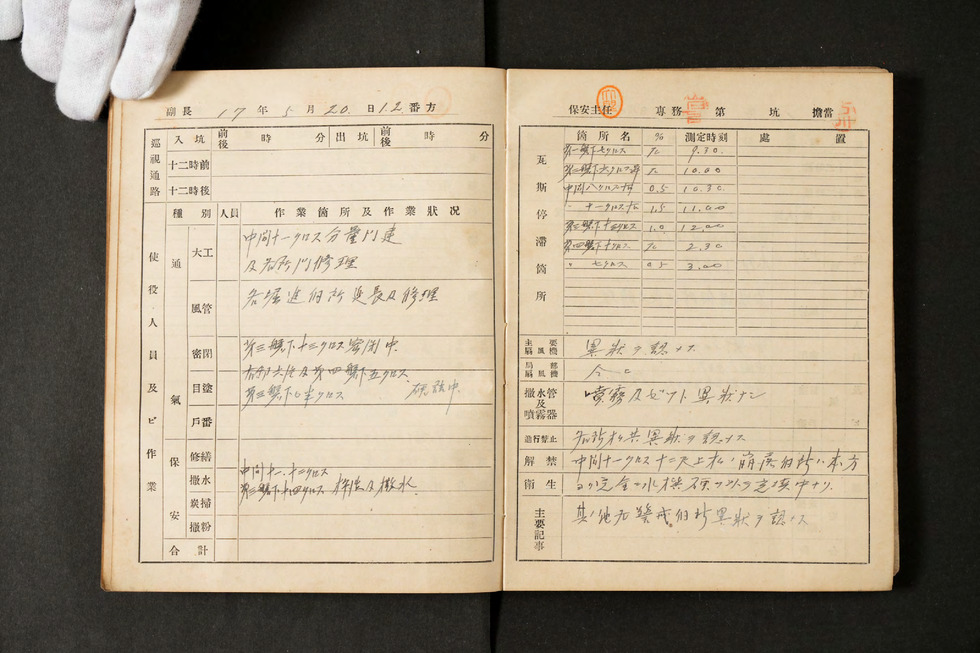 副長 17年5月20日12番方
巡視通路
入坑 前後 時 分 出坑 前後 時 分
十二時前
十二時後
使役人員及ビ作業
種別 人員 作業箇所及作業狀况
通氣
大工 中間十一クロス分量門建
及各所門修理
風管 各堀進個所延長及修理
密閉 第三盤下十三クロス密閉中
目塗 及第四盤下五クロス
戶番
保安
修繕
撒水 中間十一、十二クロス
第三盤下十四クロス 及撒水
炭掃
撒粉
合計
保安主任 專務 第 坑 擔當
瓦斯停滯箇所
箇所名 % 測定時刻 處置
第一盤下七クロス 9.30
第二盤下六クロス 10.00
中間八クロス 0.5 10.30
〃 十一クロス 1.5 11.00
第三盤下十三クロス 1.0 12.00
第四盤下十クロス 2.30
〃 七クロス 0.5 3.00
主要扇風機 異狀ヲ認メズ
局部扇風機 仝上
撒水管及噴霧器 噴霧及ゼット異狀ナシ
進行禁止 各所 共異狀ヲ認メズ
解禁 中間十一クロス十二尺上 崩落個所ハ本方
衛生 完全 充填中ナリ
主要記事 其ノ他各 個所異狀ヲ認メズ